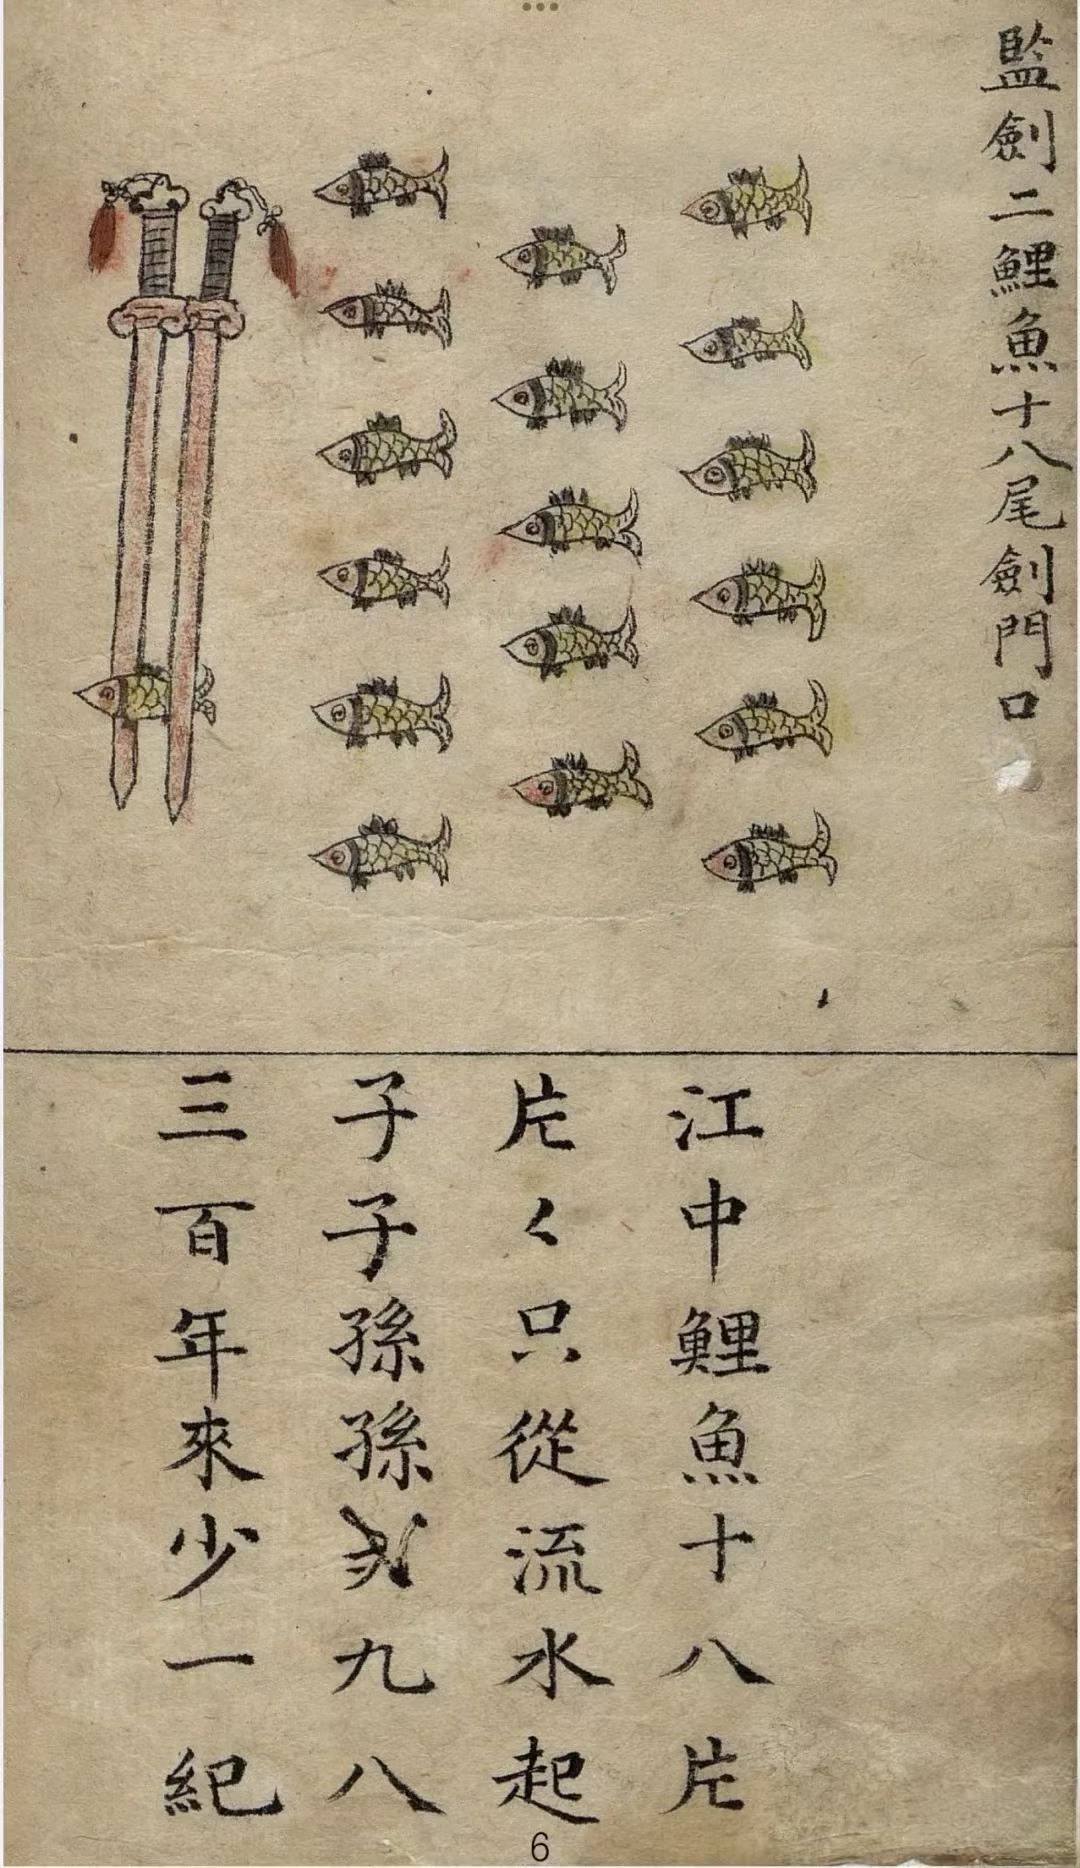 監劍二鯉魚十八尾劍門口
江中鯉魚十八片
片々只從流水起
子子孫孫九八
三百年來少一紀
6